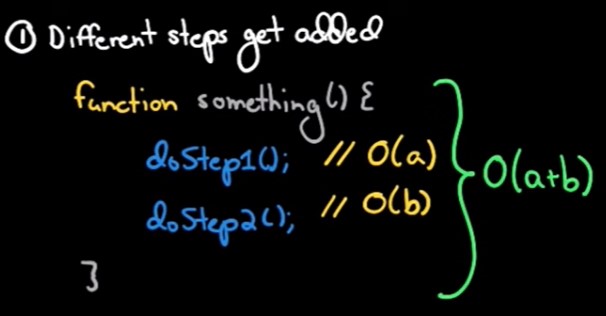 ① Different steps get added
function something() {
doStep1(); // O(a)
doStep2(); // O(b)
} O(a+b)
}